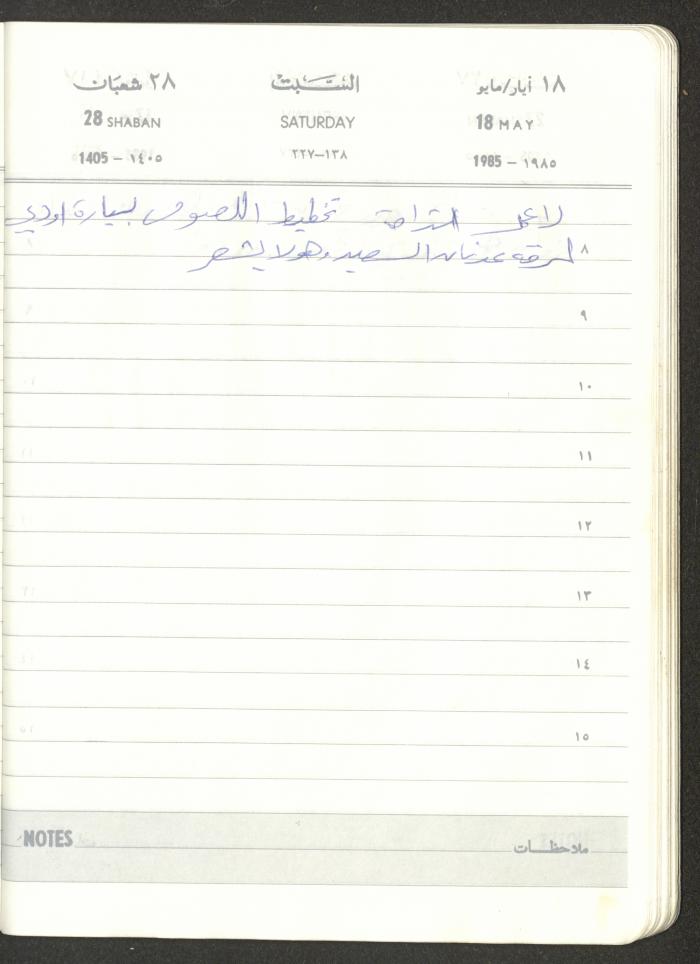 ١٨ أيار/مايو السَّبت ٢٨ شعبَان
18 MAY SATURDAY 28 SHABAN
1985 – ١٩٨٥ ١٣٨–٢٢٧ 1405 – ١٤٠٥
لا عمل استراحة تخطيط اللصوص بسيارة اودي
لسرقة عدنان السعيد وهو لا يشعر
٨
٩
١٠
١١
١٢
١٣
١٤
١٥
NOTES ملاحظات